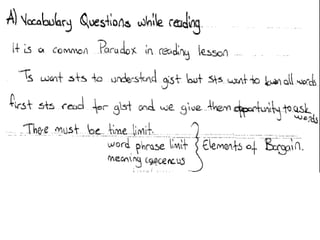 A) Vocabulary Questions while reading.
It is a common Paradox in reading lesson
Ts want sts to understand gist but sts want to known all words
first sts read for gist and we give them opportunity to ask words
There must be time limit.
word phrase limit } Elements of Bargain.
meaning